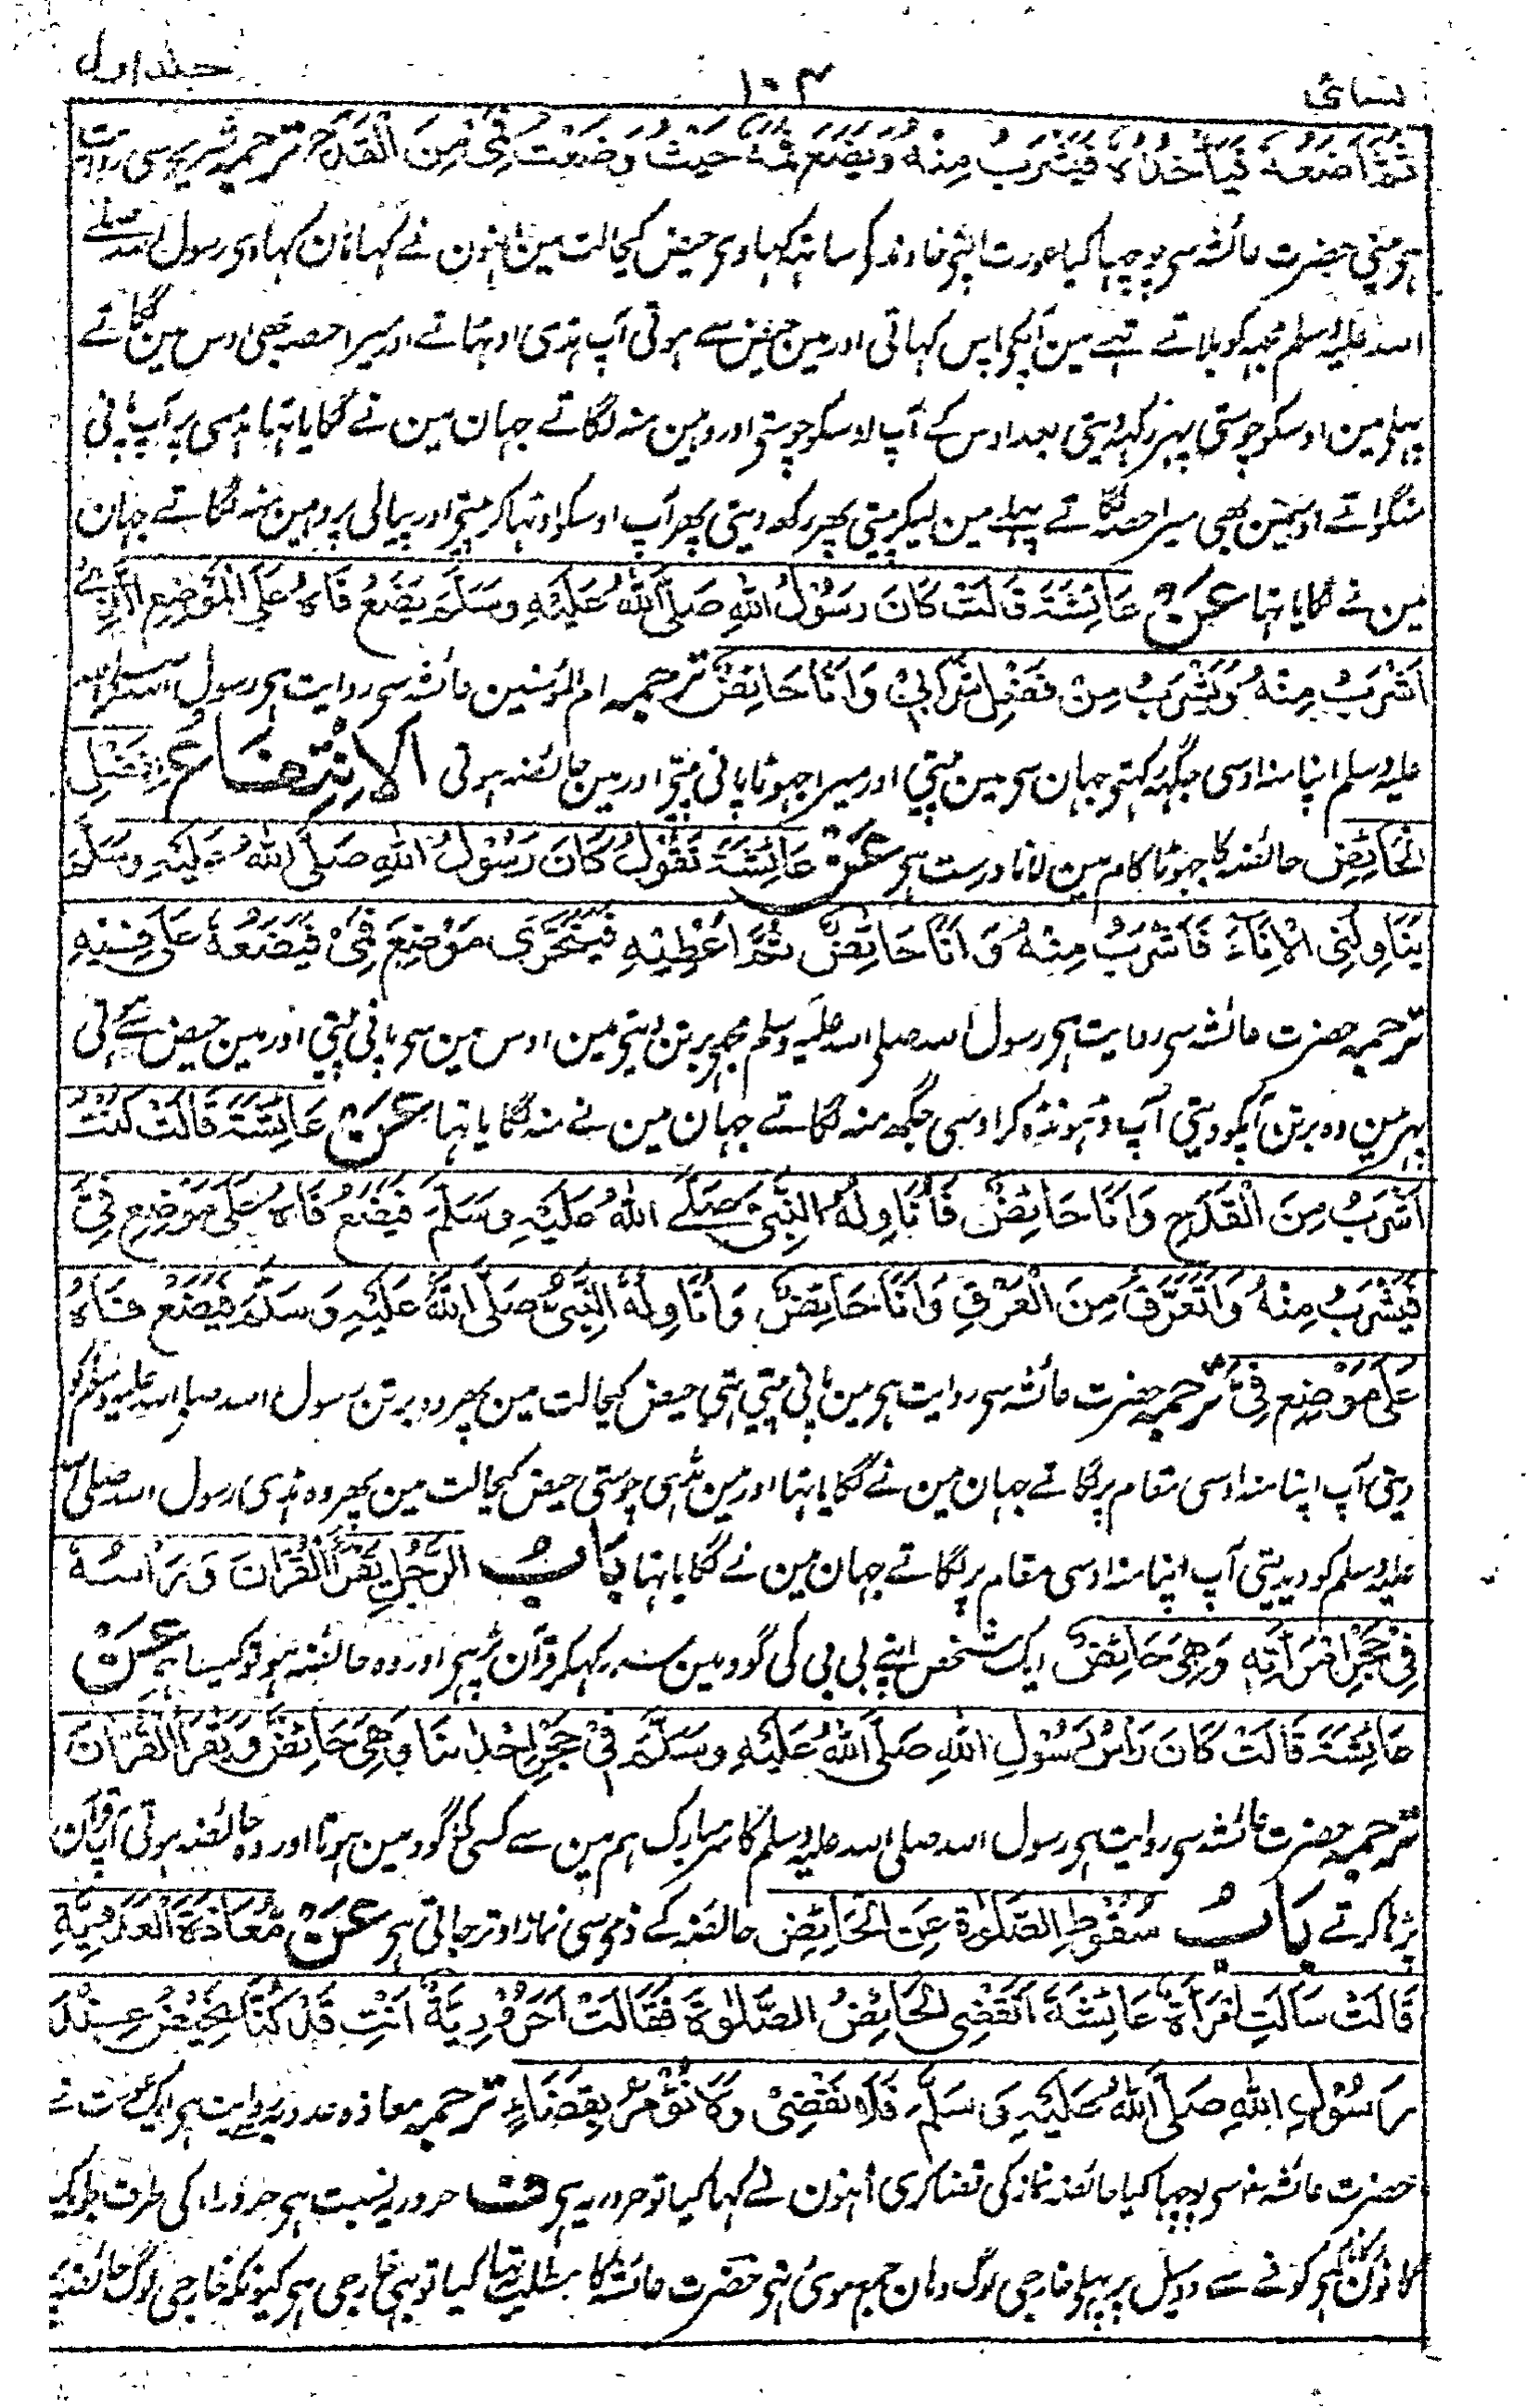 نسائی ۱۰۴ جلد اول
ثُمَّ اَضَعُهٗ فَيَأْخُذُهٗ فَيَشْرَبُ مِنْهُ وَيَضَعُ فَمَهٗ حَيْثُ وَضَعْتُ فَمِيْ مِنَ الْقَدَحِ ترجمہ شریح سی روایت
ہی مینی حضرت عائشہ سی پوچہا کیا عورت اپنی خاوند کی ساتہہ کہاوی حیض کیحالت مین انہون نے کہا ہان کہاوی رسول اللہ صلے
اللہ علیہ وسلم مجہہ کو بلاتے تہے مین آپکی پاس کہاتی اور مین حیض سے ہوتی آپ ہڈی اوٹہاتے اور میرا حصہ بھی اوس مین لگاتے
پہلی مین اوسکو چوستی پہر رکہہ دیتی بعد اوس کے آپ اوسکو چوستی اور وہین منہ لگاتے جہان مین نے لگایا تہا ہڈی پر آپ پانی
منگواتے اوسمین بھی میرا حصہ لگاتے پہلے مین لیکر پیتی پھر رکھ دیتی پھر آپ اوسکو اوٹہا کر پیتی اور پیالی پر وہین منہ لگاتے جہان
مین نے لگایا تہا عَنْ عَائِشَةَ قَالَتْ كَانَ رَسُوْلُ اللهِ صَلَّى اللهُ عَلَيْهِ وَسَلَّمَ يَضَعُ فَاهُ عَلَى الْمَوْضِعِ الَّذِيْ
اَشْرَبُ مِنْهُ وَيَشْرَبُ مِنْ فَضْلِ شَرَابِيْ وَاَنَا حَائِضٌ ترجمہ ام المؤمنین عائشہ سی روایت ہی رسول اللہ صلی اللہ
علیہ وسلم اپنا منہ اوسی جگہہ رکہتی جہان سی مین پیتی اور میرا جہوٹا پانی پیتی اور مین حائضہ ہوتی الْاِنْتِفَاعُ بِفَضْلِ
الْحَائِضِ حائضہ کا جہوٹا کام مین لانا درست ہی عَنْ عَائِشَةَ تَقُوْلُ كَانَ رَسُوْلُ اللهِ صَلَّى اللهُ عَلَيْهِ وَسَلَّمَ
يُنَاوِلُنِى الْاِنَاءَ فَاَشْرَبُ مِنْهُ وَاَنَا حَائِضٌ ثُمَّ اُعْطِيْهِ فَيَتَحَرَّى مَوْضِعَ فَمِيْ فَيَضَعُهٗ عَلَى فِيْهِ
ترجمہ حضرت عائشہ سی روایت ہی رسول اللہ صلی اللہ علیہ وسلم مجہی برتن دیتی مین اوس مین سی پانی پیتی اور مین حیض سے ہوتی
پہر مین وہ برتن آپکو دیتی آپ ڈہونڈہ کر اوسی جگھ منہ لگاتے جہان مین نے منہ لگایا تہا عَنْ عَائِشَةَ قَالَتْ كُنْتُ
اَشْرَبُ مِنَ الْقَدَحِ وَاَنَا حَائِضٌ فَاُنَاوِلُهُ النَّبِيَّ صَلَّى اللهُ عَلَيْهِ وَسَلَّمَ فَيَضَعُ فَاهُ عَلَى مَوْضِعِ فِيَّ
فَيَشْرَبُ مِنْهُ وَاَتَعَرَّقُ مِنَ الْعَرْقِ وَاَنَا حَائِضٌ وَاُنَاوِلُهُ النَّبِيَّ صَلَّى اللهُ عَلَيْهِ وَسَلَّمَ فَيَضَعُ فَاهُ
عَلَى مَوْضِعِ فِيَّ ترجمہ حضرت عائشہ سی روایت ہی مین پانی پیتی تہی حیض کیحالت مین پھر وہ برتن رسول اللہ صلی اللہ علیہ وسلم کو
دیتی آپ اپنا منہ اوسی مقام پر لگاتے جہان مین نے لگایا تہا اور مین ہڈی چوستی حیض کیحالت مین پھر وہ ہڈی رسول اللہ صلی اللہ
علیہ وسلم کو دیدیتی آپ اپنا منہ اوسی مقام پر لگاتے جہان مین نے لگایا تہا بَابُ الرَّجُلِ يَقْرَأُ الْقُرْاٰنَ وَرَاْسُهٗ
فِيْ حَجْرِ امْرَاَتِهٖ وَهِيَ حَائِضٌ ایک شخص اپنے بی بی کی گود مین سر رکہکر قرآن پڑہی اور وہ حائضہ ہو تو کیسا ہی عَنْ
عَائِشَةَ قَالَتْ كَانَ رَاْسُ رَسُوْلِ اللهِ صَلَّى اللهُ عَلَيْهِ وَسَلَّمَ فِيْ حَجْرِ اِحْدٰىنَا وَهِيَ حَائِضٌ وَيَقْرَأُ الْقُرْاٰنَ
ترجمہ حضرت عائشہ سی روایت ہی رسول اللہ صلی اللہ علیہ وسلم کا سر مبارک ہم مین سے کسی کی گود مین ہوتا اور وہ حائضہ ہوتی آپ قرآن
پڑہا کرتے بَابُ سُقُوْطِ الصَّلٰوةِ عَنِ الْحَائِضِ حائضہ کے ذمی سی نماز اوتر جاتی ہی عَنْ مُعَاذَةَ الْعَدَوِيَّةِ
قَالَتْ سَاَلَتِ امْرَاَةٌ عَائِشَةَ اَتَقْضِى الْحَائِضُ الصَّلٰوةَ فَقَالَتْ اَحَرُوْرِيَّةٌ اَنْتِ قَدْ كُنَّا نَحِيْضُ عِنْدَ
رَسُوْلِ اللهِ صَلَّى اللهُ عَلَيْهِ وَسَلَّمَ فَلَا نَقْضِيْ وَلَا نُؤْمَرُ بِقَضَاءٍ ترجمہ معاذہ عدویہ سی روایت ہی ایک عورت نے
حضرت عائشہ سی پوچہا کیا حائضہ نماز کی قضا کری اُنہون نے کہا کیا تو حروریہ ہی ف حروریہ نسبت ہی حروراء کی طرف جو ایک
گانون ہی کوفے سے دو میل پر پہلی خارجی لوگ وہان جمع ہوئی تہی حضرت عائشہ کا مطلب یہ تہا کیا تو بہی خارجی ہی کیونکہ خارجی لوگ حائضہ